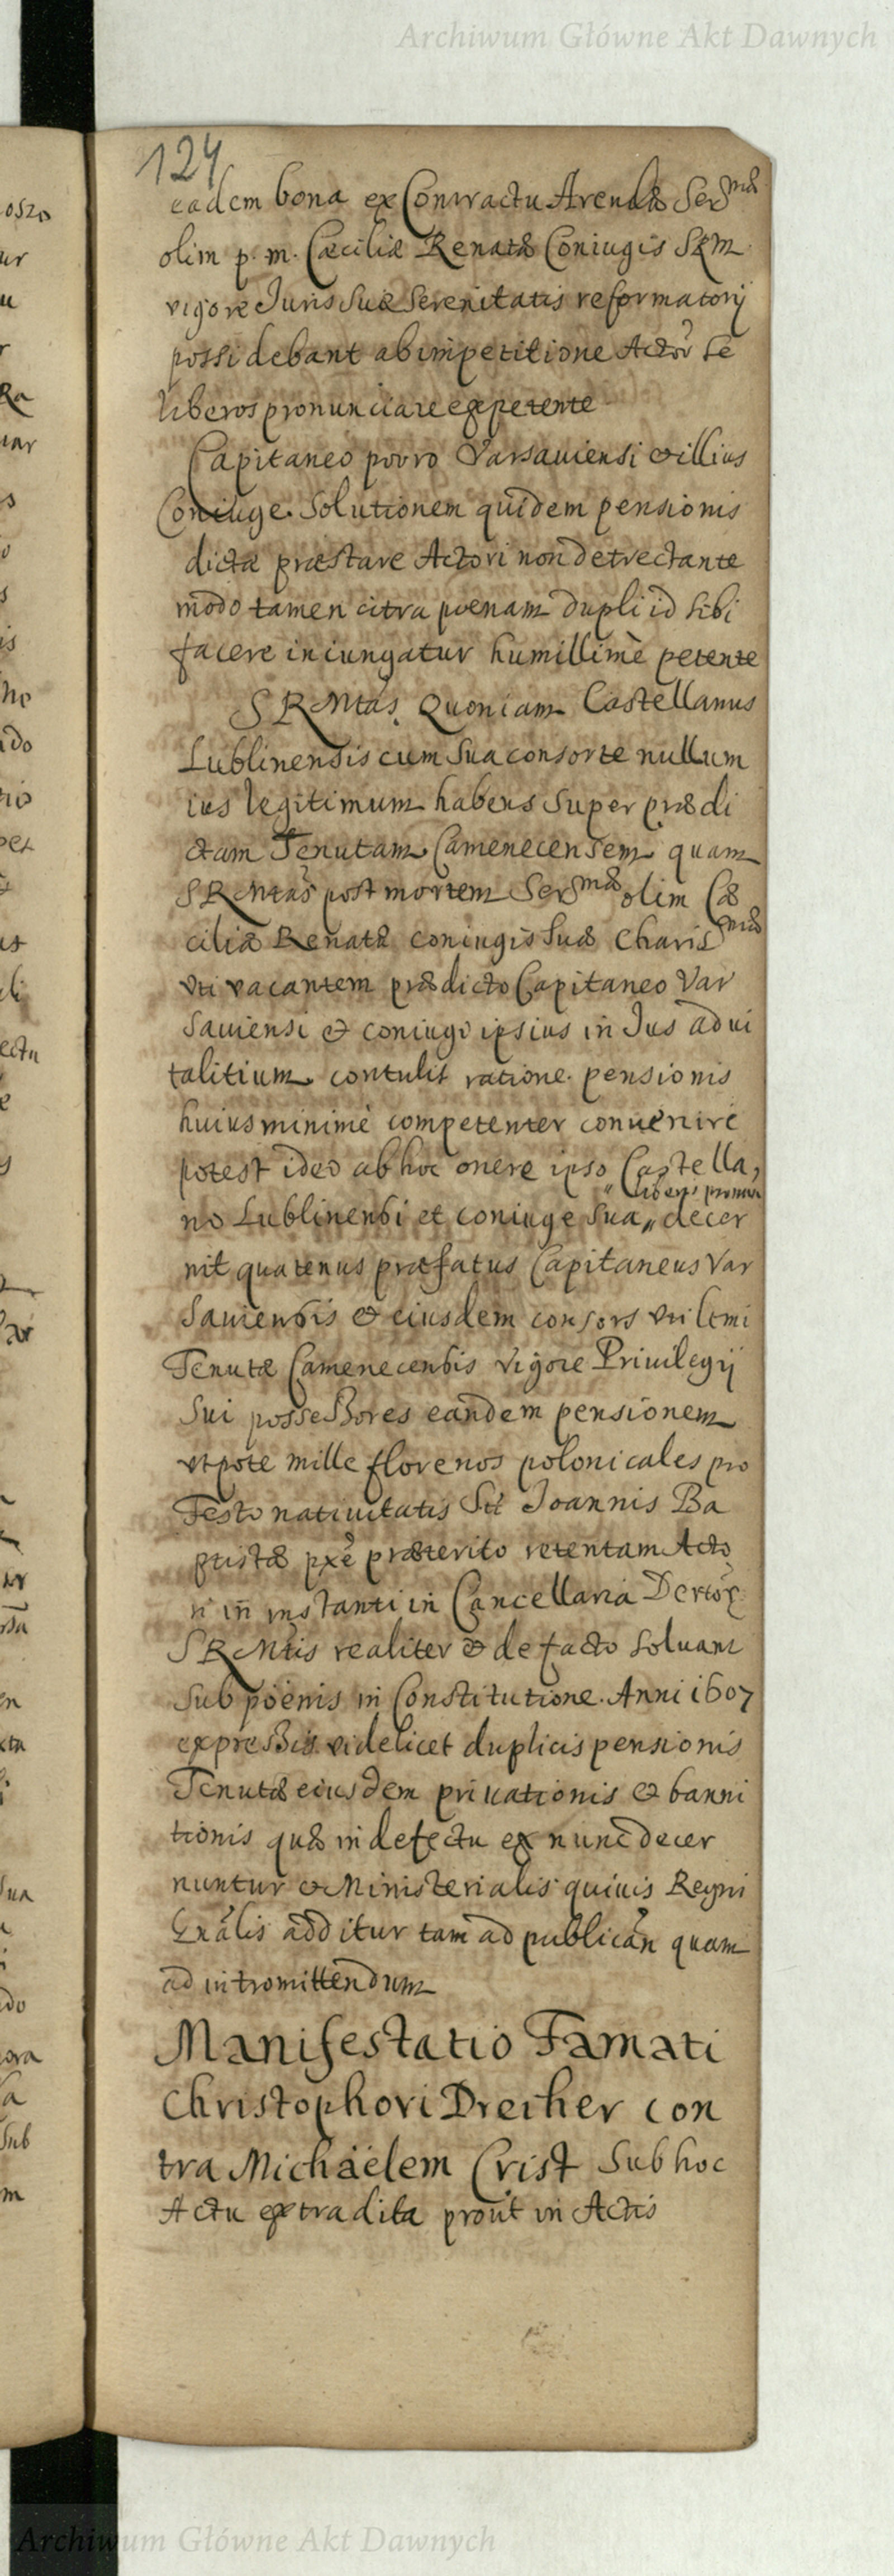 Archiwum Główne Akt Dawnych
124
eadem bona ex Contractu Arendæ Serᵐᵃᵉ
olim p. m. Cæciliæ Renatæ Coniugis SRM
vigore Juris suæ Serenitatis reformatorij
possidebant ab impetitione Actor̃ se
liberos pronunciare expetente
Capitaneo porro Varsauiensi et illius
Coniuge. Solutionem quidem pensionis
dictæ præstare Actori non detrectante
modo tamen citra pœnam dupli id sibi
facere iniungatur humillimè petente
SRMtas. Quoniam Castellanus
Lublinensis cum sua consorte nullum
ius legitimum habens super prædi
ctam Tenutam Camenecensem quam
SRMtas post mortem Serᵐᵃᵉ olim Cæ
ciliæ Renatæ coniugis suæ Charisᵐᵃᵉ
vti vacantem prædicto Capitaneo Var
sauiensi & coniugi ipsius in Jus adui
talitium contulit ratione pensionis
huius minimè competenter conuenire
potest ideo ab hoc onere ipso Castella,
no Lublinensi et coniuge sua,, decer
,, liberis pronun
nit quatenus præfatus Capitaneus Var
sauiensis & eiusdem consors vti
Tenutæ Camenecensis vigore Priuilegij
sui possessores eandem pensionem
vtpote mille florenos polonicales pro
Festo natiuitatis Sti Joannis Ba
ptistæ pxe præterito retentam Acto
ri in instanti in Cancellaria
SRMtis realiter & de facto soluant
sub pœnis in Constitutione. Anni 1607
expressis videlicet duplicis pensionis
Tenutæ eiusdem priuationis & banni
tionis quæ in defectu ex nunc decer
nuntur et Ministerialis quiuis Regni
Gnãlis additur tam ad publicañ quam
ad intromittendum
Manifestatio Famati
Christophori Dreiher con
tra Michäelem Crist Sub hoc
Actu extradita prout in Actis
Archiwum Główne Akt Dawnych